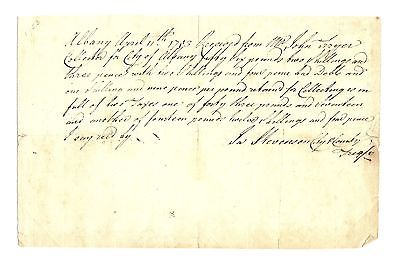 Albany April 11th 1793 Received from Mr John Fryer
Collector for City of Albany fifty six pounds two Shillings and
three pence with two Shillings and four pence bad Debt and
one Shilling and nine pence per pound reband for Collecting is in
full of two Taxes one of forty three pounds and seventeen
and another of fourteen pounds twelve Shillings and four pence
I say recd by
Jas Stevenson City & County
Treasr